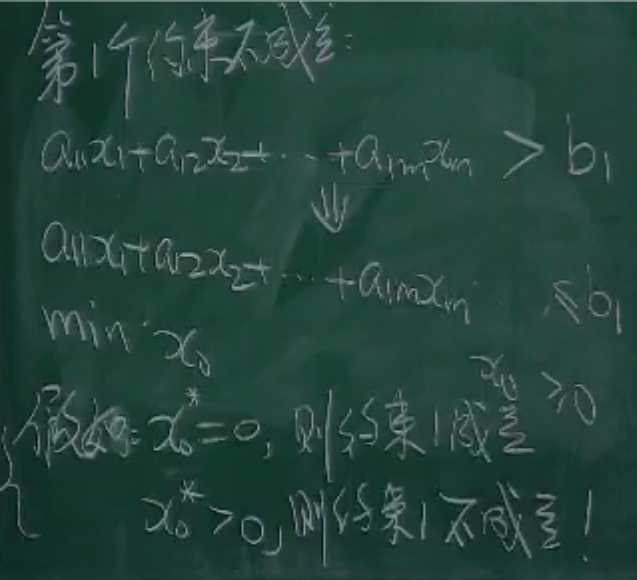 第1个约束不成立:
a₁₁x₁+a₁₂x₂+⋯+a₁ₘxₘ > b₁
⇓
a₁₁x₁+a₁₂x₂+⋯+a₁ₘxₘ ≤b₁
min x₀
x₀ ≥0
假如: x₀*=0, 则约束1成立
x₀*>0, 则约束1不成立!